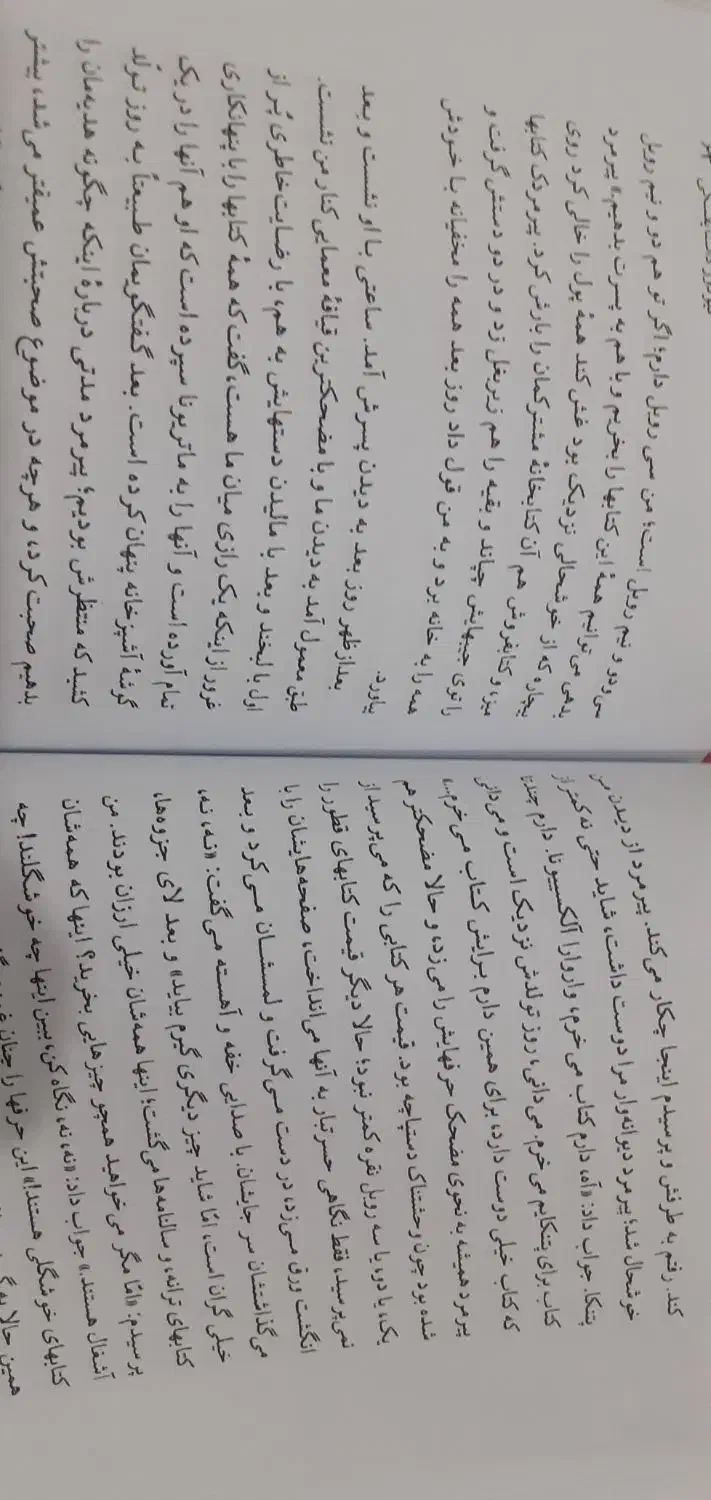 کند. رفتم به طرفش و پرسیدم اینجا چکار می‌کند. پیرمرد از دیدن من
خوشحال شد؛ پیرمرد دیوانه‌وار مرا دوست داشت، شاید حتی نه کمتر از
پتنکا. جواب داد: «آه، دارم کتاب می خرم، واروارا آلکسیونا. دارم چندتا
کتاب برای پتنکایم می خرم. می‌دانی، روز تولدش نزدیک است و می‌دانی
که کتاب خیلی دوست دارد، برای همین دارم برایش کتاب می خرم...»
پیرمرد همیشه به نحوی مضحک حرفهایش را می زد، و حالا مضحکتر هم
شده بود چون وحشتناک دستپاچه بود. قیمت هر کتابی را که می‌پرسید از
یک، یا دو، یا سه روبل نقره کمتر نبود؛ حالا دیگر قیمت کتابهای قطور را
نمی پرسید، فقط نگاهی حسرتبار به آنها می‌انداخت، صفحه‌هایشان را با
انگشت ورق می‌زد، در دست می‌گرفت و لمسشان می‌کرد و بعد
می‌گذاشتشان سر جایشان. با صدایی خفه و آهسته می‌گفت: «نه، نه،
خیلی گران است، امّا شاید چیز دیگری گیرم بیاید» و بعد لای جزوه‌ها،
کتابهای ترانه، و سالنامه‌ها می‌گشت؛ اینها همه‌شان خیلی ارزان بودند. من
پرسیدم: «امّا مگر می خواهید همچو چیزهایی بخرید؟ اینها که همه‌شان
آشغال هستند.» جواب داد: «نه، نه، نگاه کن، ببین اینها چه خوشگلند! چه
کتابهای خوشگلی هستند!» این حرفها را چنان
همین حالا
سی و دو و نیم روبل است؛ من سی روبل دارم؛ اگر تو هم دو و نیم روبل
بدهی می توانیم همۀ این کتابها را بخریم و با هم به پسرت بدهیم.» پیرمرد
بیچاره که از خوشحالی نزدیک بود غش کند همۀ پول را خالی کرد روی
میز، و کتابفروش هم آن کتابخانۀ مشترکمان را بارش کرد. پیرمردک کتابها
را توی جیبهایش چپاند و بقیه را هم زیربغل زد و در دو دستش گرفت و
همه را به خانه برد و به من قول داد روز بعد همه را مخفیانه با خودش
بیاورد.
بعدازظهر روز بعد به دیدن پسرش آمد. ساعتی با او نشست و بعد
طبق معمول آمد به دیدن ما و با مضحکترین قیافۀ معمایی کنار من نشست.
اول با لبخند و بعد با مالیدن دستهایش به هم، با رضایت خاطری پُر از
غرور از اینکه یک رازی میان ما هست، گفت که همۀ کتابها را با پنهانکاری
تمام آورده است و آنها را به ماتریونا سپرده است که او هم آنها را در یک
گوشۀ آشپزخانه پنهان کرده است. بعد گفتگویمان طبیعتاً به روز تولّد
کشید که منتظرش بودیم؛ پیرمرد مدتی دربارۀ اینکه چگونه هدیه‌مان را
بدهیم صحبت کرد، و هرچه در موضوع صحبتش عمیقتر می شد، بیشتر